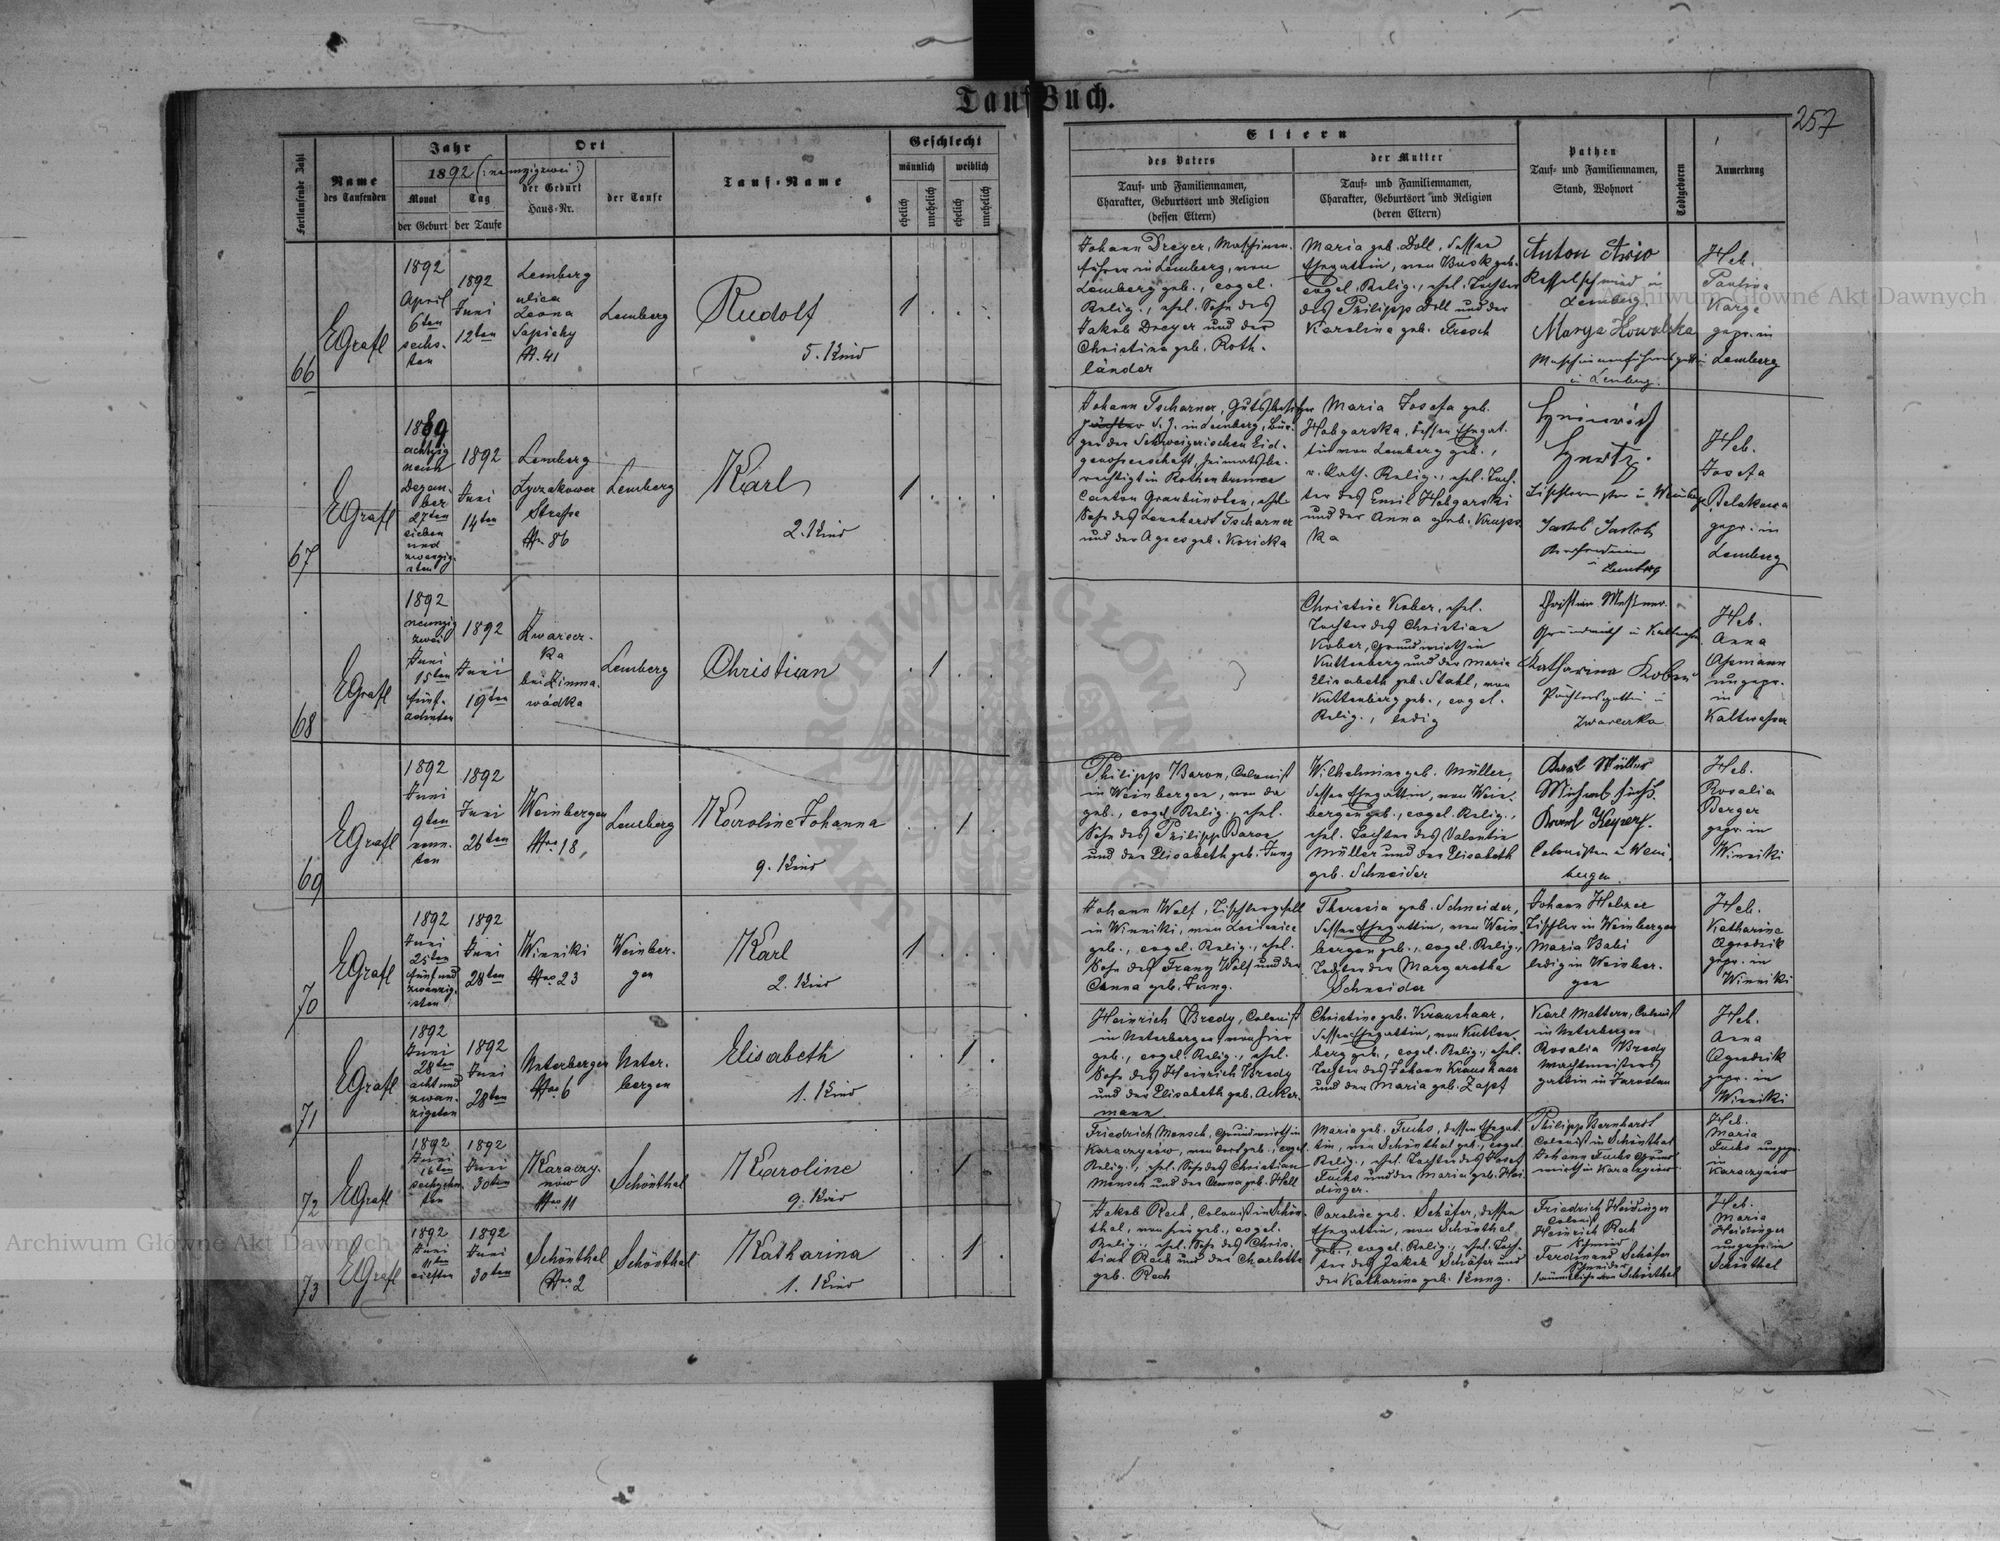 TaufBuch.
257
Fortlaufende Zahl
Name
des Taufenden
Jahr
1892 (: neunzigzwei :)
Monat
Tag
der Geburt
der Taufe
Ort
der Geburt
Haus-Nr.
der Taufe
Tauf-Name
Geschlecht
männlich
weiblich
ehelich
unehelich
ehelich
unehelich
Eltern
des Vaters
Tauf- und Familiennamen,
Charakter, Geburtsort und Religion
(dessen Eltern)
der Mutter
Tauf- und Familiennamen,
Charakter, Geburtsort und Religion
(deren Eltern)
Pathen
Tauf- und Familiennamen,
Stand, Wohnort
Todtgeboren
Anmerkung
66
EGrafl
1892
April
6ten
sechs-
ten
1892
Juni
12ten
Lemberg
ulica
Leona
Sapiehy
N. 41
Lemberg
Rudolf
5. Kind
1
Johann Dreyer, Maschinen-
führer in Lemberg, von
Lemberg geb., evgel.
Relig., ehel. Sohn des
Jakob Dreyer und der
Christina geb. Roth-
länder
Maria geb. Doll, dessen
Ehegattin, von Busk geb.
evgel. Relig., ehel. Tochter
des Philipp Doll und der
Karolina geb. Fresch
Anton
Kesselschmied in
Lemberg
Marya Kowalska
Maschinenführersgattin
in Lemberg.
Heb.
Paulina
Karge
gepr. in
Lemberg
67
EGrafl
1889
achtzig
neun
Dezem-
ber
27ten
sieben
und
zwanzig-
sten
1892
Juni
14ten
Lemberg
Lyczakower
Strasse
Nr. 86
Lemberg
Karl
2. Kind
1
Johann Tscharner, Gutsbesitzer
S. J. in Lemberg, Bür-
ger der Schweizerischen Eid-
genossenschaft heimatsbe-
rechtigt in Rothenbrunnen
Canton Graubünden, ehel.
Sohn des Leonhardt Tscharner
und der Agnes geb. Koricka
Maria Josefa geb.
Hobgarska, dessen Ehegat-
tin von Lemberg geb.,
r. kath. Relig., ehel. Toch-
ter des Emil Hobgarski
und der Anna geb. Krups
ka
in Weinbergen
Jakob
Lemberg
Heb.
Josefa
Bolakowa
gepr. in
Lemberg
68
EGrafl
1892
neunzig
zwei
Juni
15ten
fünf-
zehnten
1892
Juni
19ten
Zwarecz-
ka
bei Zimna-
wódka
Lemberg
Christian
1
Christine Kober, ehel.
Tochter des Christian
Kober, Grundwirth in
Kuttenberg und der Maria
Elisabeth geb. Stahl, von
Kuttenberg geb., evgel.
Relig., ledig
Christian Messner
Grundwirth in Kaltwasser
Katharina Kober
Pächtersgattin in
Zwareczka
Heb.
Anna
Assmann
ungepr.
in
Kaltwasser
69
EGrafl
1892
Juni
9ten
neun-
ten
1892
Juni
26ten
Weinbergen
Nro 18
Lemberg
Karoline Johanna
9. Kind
1
Philipp Baron, Colonist
in Weinbergen, von da
geb., evgel. Relig., ehel.
Sohn des Philipp Baron
und der Elisabeth geb. Jung
Wilhelmine geb. Müller,
dessen Ehegattin, von Wein-
bergen geb., evgel. Relig.,
ehel. Tochter des Valentin
Müller und der Elisabeth
geb. Schneider
Karl Müller
Michael Fuchs.
Colonisten in Wein-
bergen
Heb.
Rosalia
Berger
gepr. in
Winniki
70
EGrafl
1892
Juni
25ten
fünf und
zwanzig-
sten
1892
Juni
28ten
Winniki
Nro 23
Weinber-
gen
Karl
2. Kind
1
Johann Wolf, Tischlergesell
in Winniki, von
geb., evgel. Relig., ehel.
Sohn des Franz Wolf und der
Anna geb. Jung.
Theresia geb. Schneider,
dessen Ehegattin, von Wein-
bergen geb., evgel. Relig.,
Tochter der Margaretha
Schneider
Johann Holzer
Tischler in Weinbergen
Maria Babi
ledig in Weinber-
gen
Heb.
Katharine
Agrodnik
gepr. in
Winniki
71
EGrafl
1892
Juni
28ten
acht und
zwan-
zigsten
1892
Juni
28ten
Unterbergen
Nro 6
Unter-
bergen
Elisabeth
1. Kind
1
Heinrich Bredy, Colonist
in Unterbergen, von hier
geb., evgel. Relig., ehel.
Sohn des Heinrich Bredy
und der Elisabeth geb. Acker-
mann
Christine geb. Kraushaar,
dessen Ehegattin, von Kutten-
berg geb., evgel. Relig., ehel.
Tochter des Johann Kraushaar
und der Maria geb. Zapf
Karl Mattern, Colonist
in Unterbergen
Rosalia Bredy
Wachtmeisters
gattin in Jaroslau
Heb.
Anna
Agrodnik
gepr. in
Winniki
72
EGrafl
1892
Juni
16ten
sechzehn-
ten
1892
Juni
30ten
Karaczy-
now
Nro 11
Schönthal
Karoline
9. Kind
1
Friedrich Mensch, Grundwirth in
Karaczynow, von dort geb., evgel.
Relig., ehel. Sohn des Christian
Mensch und der Anna geb. Holl
Maria geb. Fuchs, dessen Ehegat-
tin, von Schönthal geb., evgel.
Relig., ehel. Tochter des Josef
Fuchs und der Maria geb. Hei-
dinger.
Philipp Bernhardt
Colonist in Schönthal
Johann Fuchs Grund-
wirth in Karaczynow
Heb.
Maria
Fuchs ungepr.
in
Karaczynow
73
EGrafl
1892
Juni
11ten
eilften
1892
Juni
30ten
Schönthal
Nro 2
Schönthal
Katharina
1. Kind
1
Jakob Rach, Colonist in Schön-
thal, von hier geb., evgel.
Relig., ehel. Sohn des Chris-
tian Rach und der Charlotte
geb. Rech
Caroline geb. Schäfer, dessen
Ehegattin, von Schönthal
geb., evgel. Relig., ehel. Toch-
ter des Jakob Schäfer und
der Katharina geb. Kunz.
Friedrich Heidinger
Colonist
Heinrich Rach
Schmied
Ferdinand Schäfer
Schneider
sämmtliche von Schönthal
Heb.
Maria
Heidinger
ungepr. in
Schönthal
Archiwum Główne Akt Dawnych
Archiwum Główne Akt Dawnych
ARCHIWUM GŁÓWNE AKT DAWNYCH